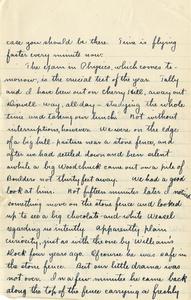 case you should be there. Time is flying
faster every minute now.
The exam in Physics, which comes to-
morrow, is the crucial test of the year. Tally
and I have been out on Cherry Hill, away out
way, all day - studying the whole
time and taking our lunch. Not without
interruption, however. We were on the edge
of a big hill-pasture near a stone fence, and
after we had settled down and been silent
awhile a big Woodchuck came out on a pile of
Boulders not thirty feet away. We had a good
look at him. Not fifteen minutes later I noticed
something move on the stone fence and looked
up to see a big chocolate-and-white Weasel
regarding us intently. Apparently plain
curiosity, just as with the one by
Rock four years ago. Of course he was safe in
the stone fence. But our little drama was
not over. In a few minutes he came back
along the top of the fence carrying a freshly